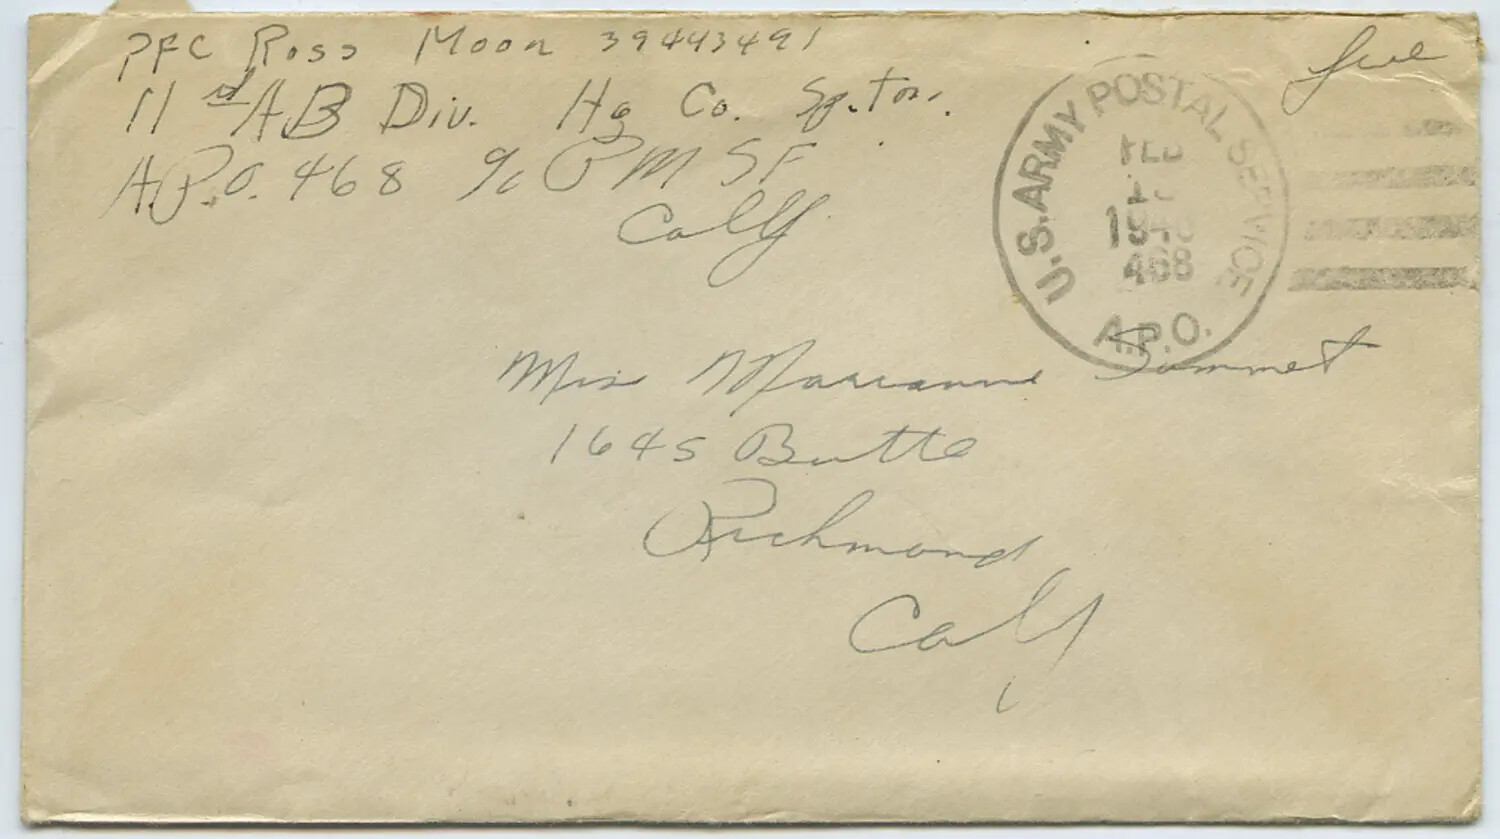 PFC Ross Moon 39443491
11th AB Div. Hq Co. Sp. Trs.
A.P.O. 468 c/o PM SF
Calif
Free
U.S. ARMY POSTAL SERVICE
FEB
1946
468
A.P.O.
Miss Marianne Sommet
1645 Butte
Richmond
Calif